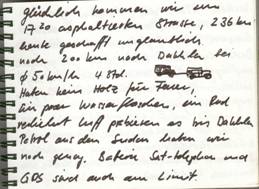 glücklich kommen wir um
17 20 asphaltierten Strasse, 236 km
heute geschafft unglaublich.
noch 200 km nach Dakhla bei
ø 50 km/h 4 Std.
Haben kein Holz für Feuer,
ein paar Wasserflaschen, ein Rad
verliert Luft probieren es bis Dakhla
Petrol aus dem Sudan haben wir
noch genug. Batterie Sat-telephon und
GPS sind auch am Limit.